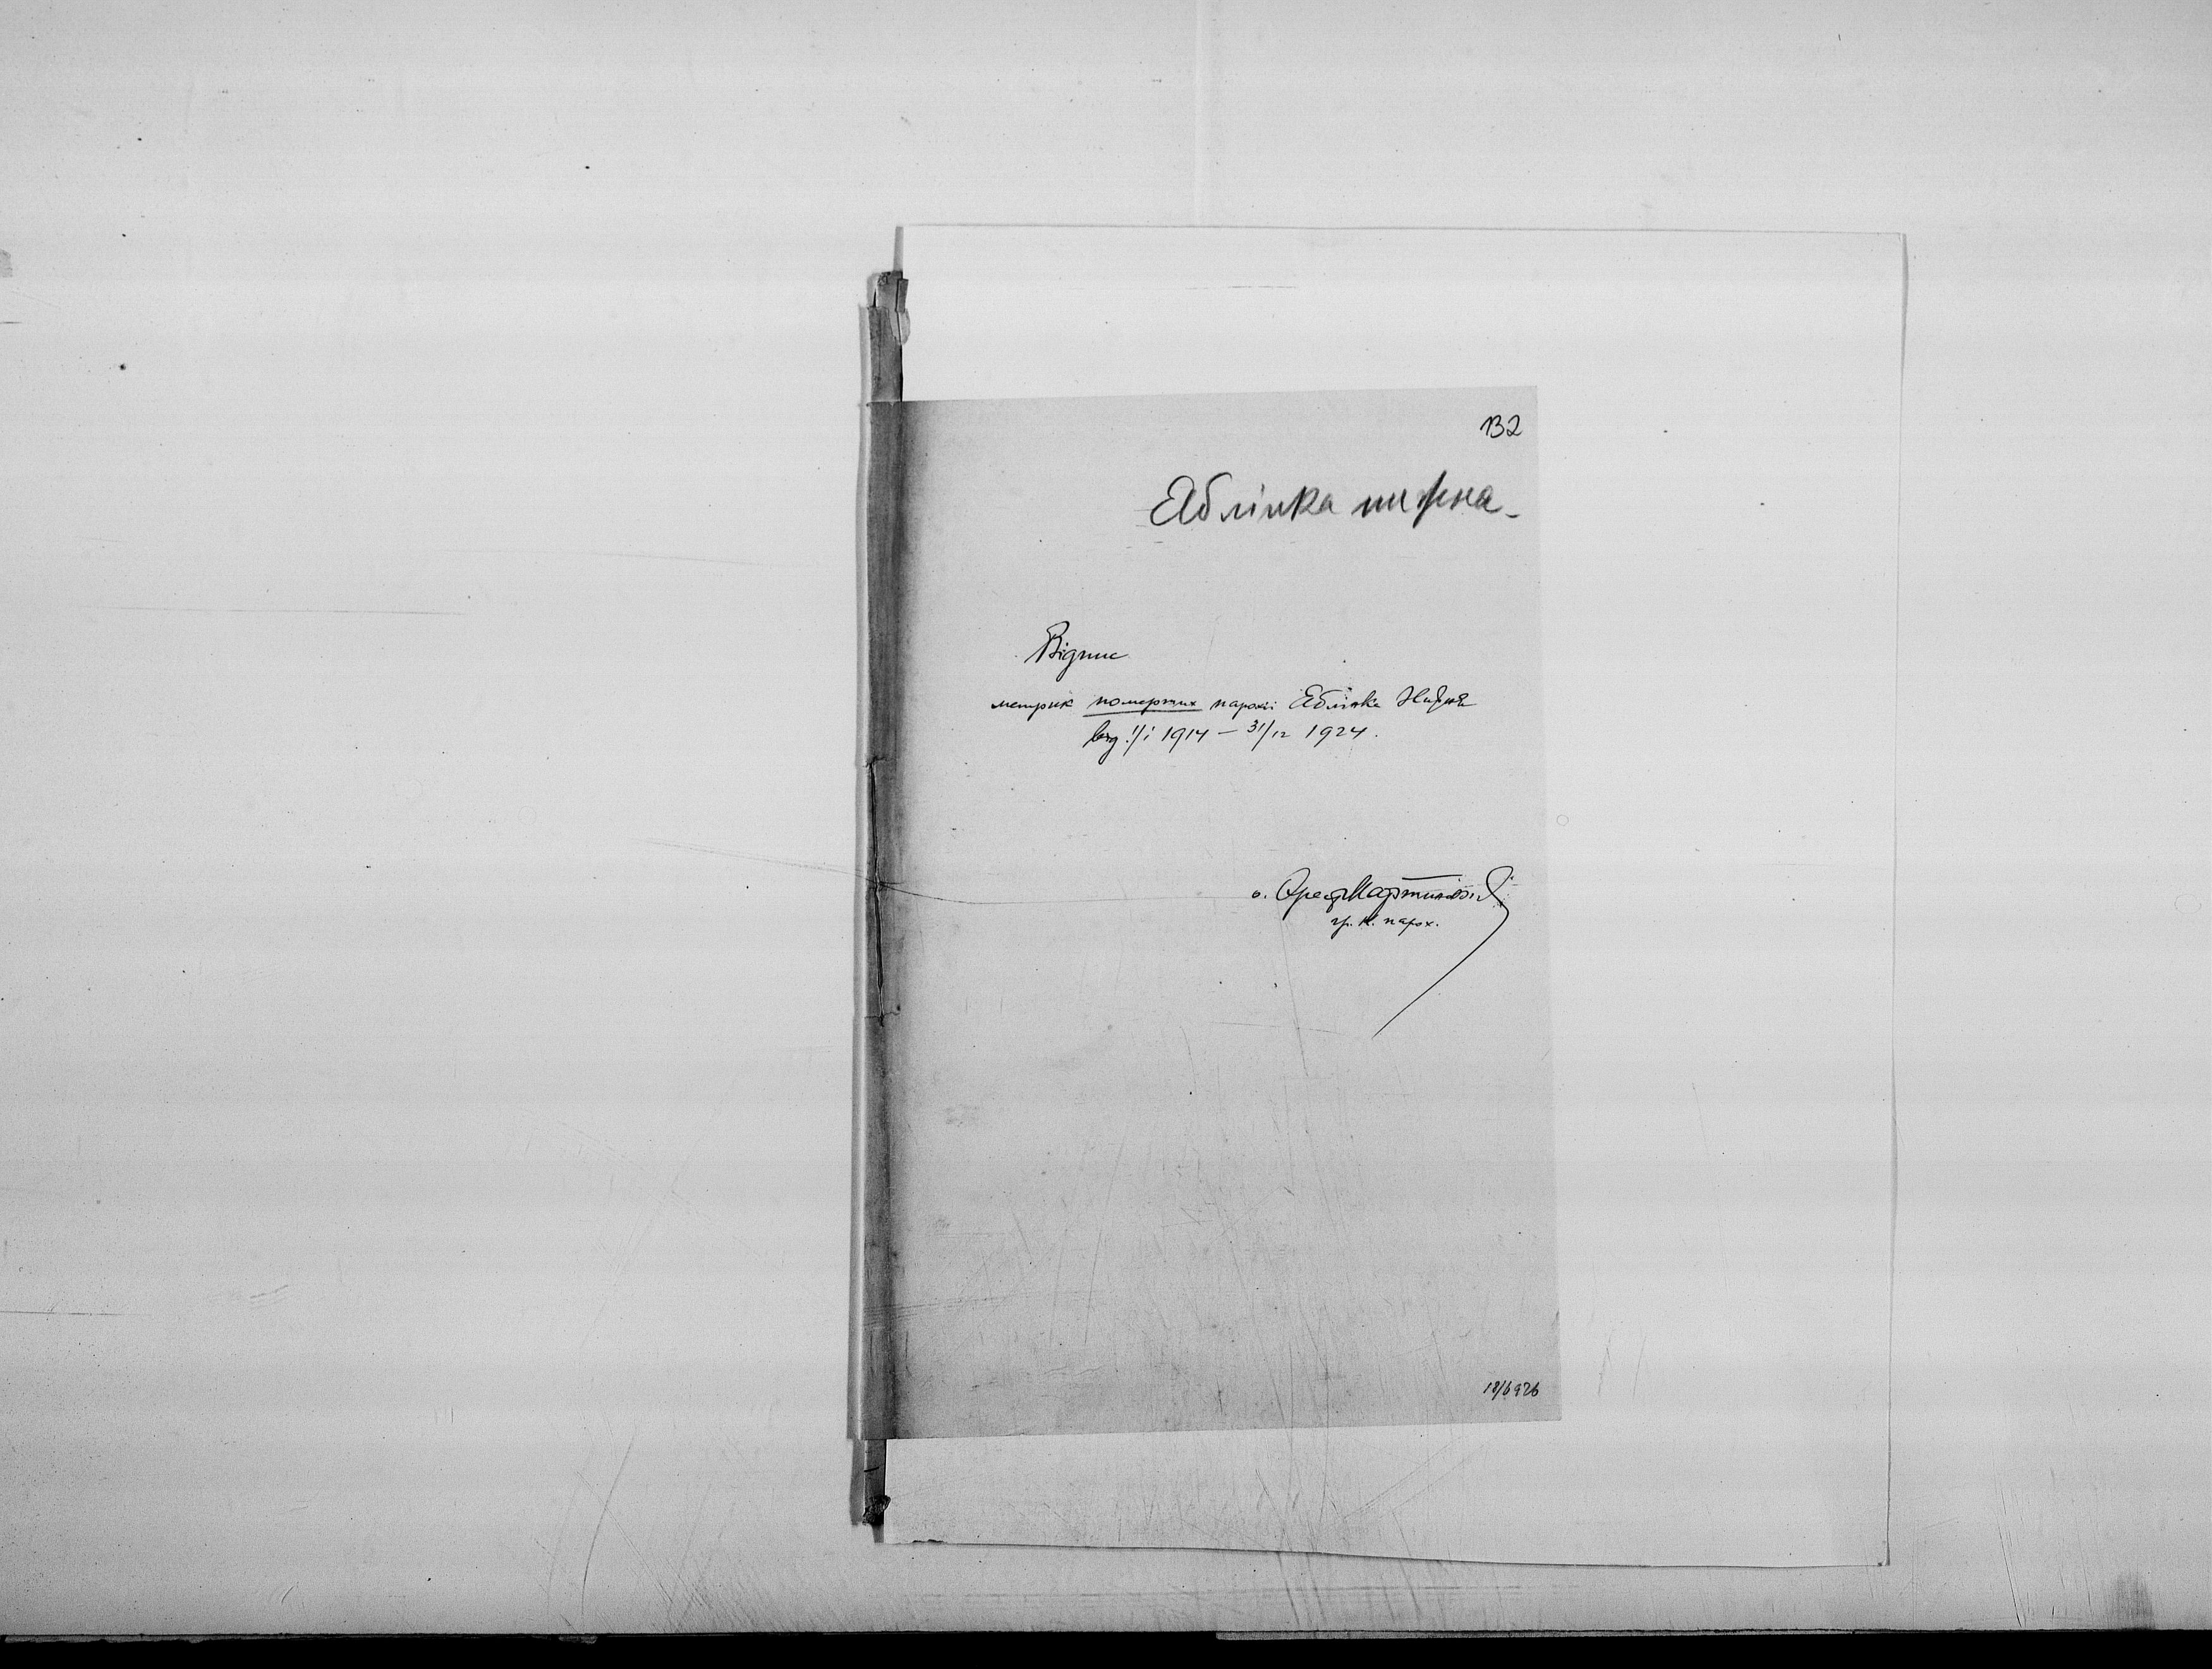 132
Яблінка нижна
Відпис
метрик померших парохії Яблінка Нижна
від 1/I 1914 — 31/12 1924.
о. Орест Мартинович
гр. к. парох.
18/6 926